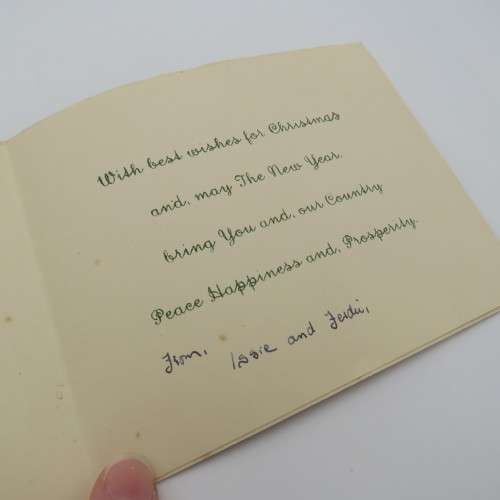 With best wishes for Christmas
and, may The New Year.
bring You and, our Country
Peace Happiness and, Prosperity.
From, Issie and Ferdi,